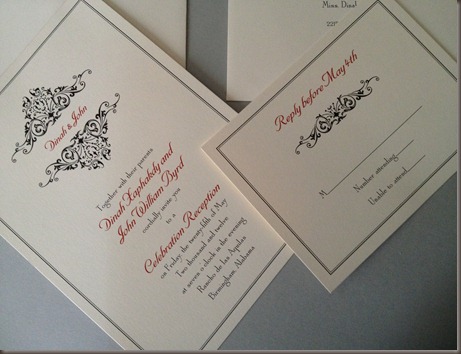 Dinah & John
Together with their parents
Dinah Xaphakdy and
John William Byrd
cordially invite you
to a
Celebration Reception
on Friday, the twenty-fifth of May
Two thousand and twelve
at seven o'clock in the evening
Rancho de las Aquilas
Birmingham Alabama
Miss. Dina
221
Reply before May 4th
M
Number attending
Unable to attend